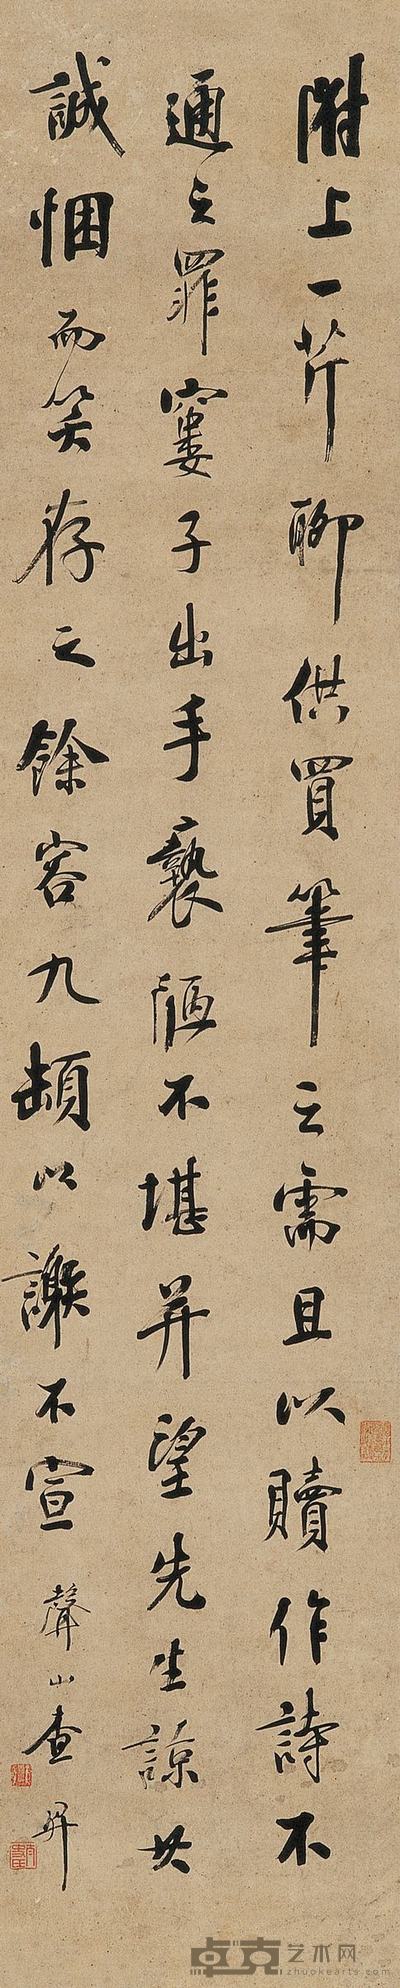 附上一芹聊供買筆之需且以贖作詩不
通之罪窶子出手褻陋不堪并望先生諒其
誠悃而笑存之餘容九頓以謝不宣 聲山查昇
卓克艺术网
zhuokearts.com